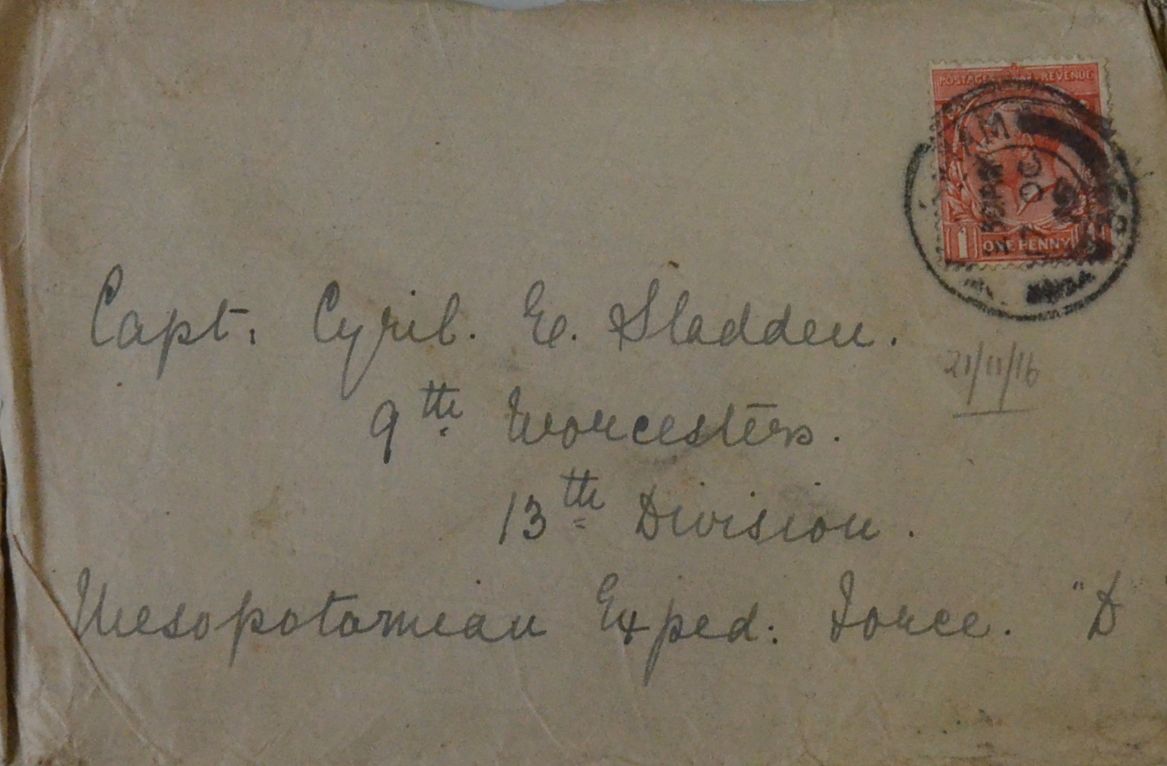 POSTAGE REVENUE
1 ONE PENNY 1
Capt. Cyril. E. Sladden.
21/11/16
9th Worcesters.
13th Division.
Mesopotamian Exped: Force. "D